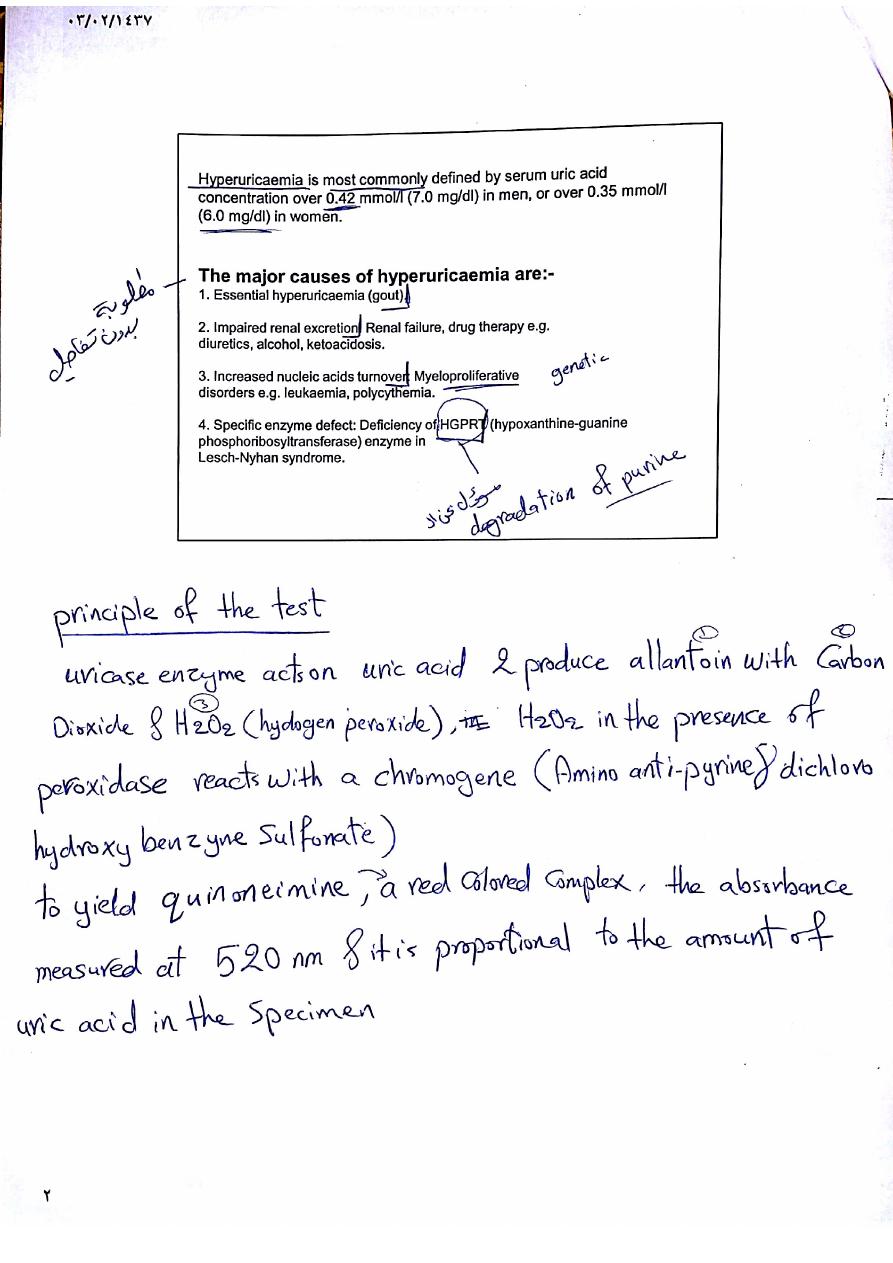 ٠٣/٠٢/١٤٣٧
Hyperuricaemia is most commonly defined by serum uric acid
concentration over 0.42 mmol/l (7.0 mg/dl) in men, or over 0.35 mmol/l
(6.0 mg/dl) in women.
The major causes of hyperuricaemia are:-
مطلوبة
بدون تفاصيل
1. Essential hyperuricaemia (gout)
2. Impaired renal excretion Renal failure, drug therapy e.g.
diuretics, alcohol, ketoacidosis.
3. Increased nucleic acids turnover Myeloproliferative
genetic
disorders e.g. leukaemia, polycythemia.
4. Specific enzyme defect: Deficiency of HGPRT (hypoxanthine-guanine
phosphoribosyltransferase) enzyme in
Lesch-Nyhan syndrome.
degradation of purine
principle of the test
uricase enzyme acts on uric acid & produce allantoin with Carbon
1 2
Dioxide & H2O2 (hydogen peroxide), H2O2 in the presence of
3
peroxidase reacts with a chromogene (Amino anti-pyrine & dichloro
hydroxy benzyne Sulfonate)
to yield quinoneimine, a red Colored Complex, the absorbance
measured at 520 nm & it is proportional to the amount of
uric acid in the Specimen
٢